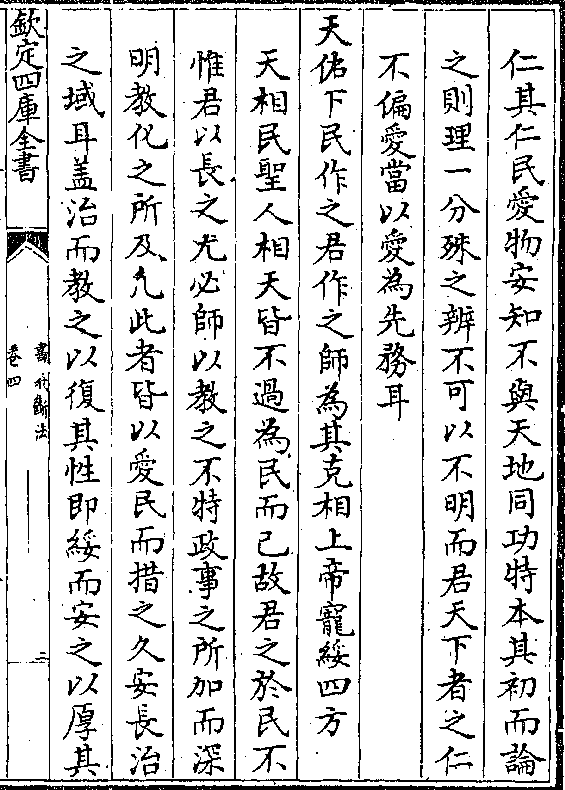 仁其仁民愛物安知不與天地同功特本其初而論
之則理一分殊之辨不可以不明而君天下者之仁
不偏愛當以愛為先務耳
天佑下民作之君作之師為其克相上帝寵綏四方
天相民聖人相天皆不過為民而已故君之於民不
惟君以長之尤必師以教之不特政事之所加而深
明教化之所及凢此者皆以愛民而措之久安長治
之域耳盖治而教之以復其性即綏而安之以厚其
欽定四庫全書
書義斷法
卷四
二